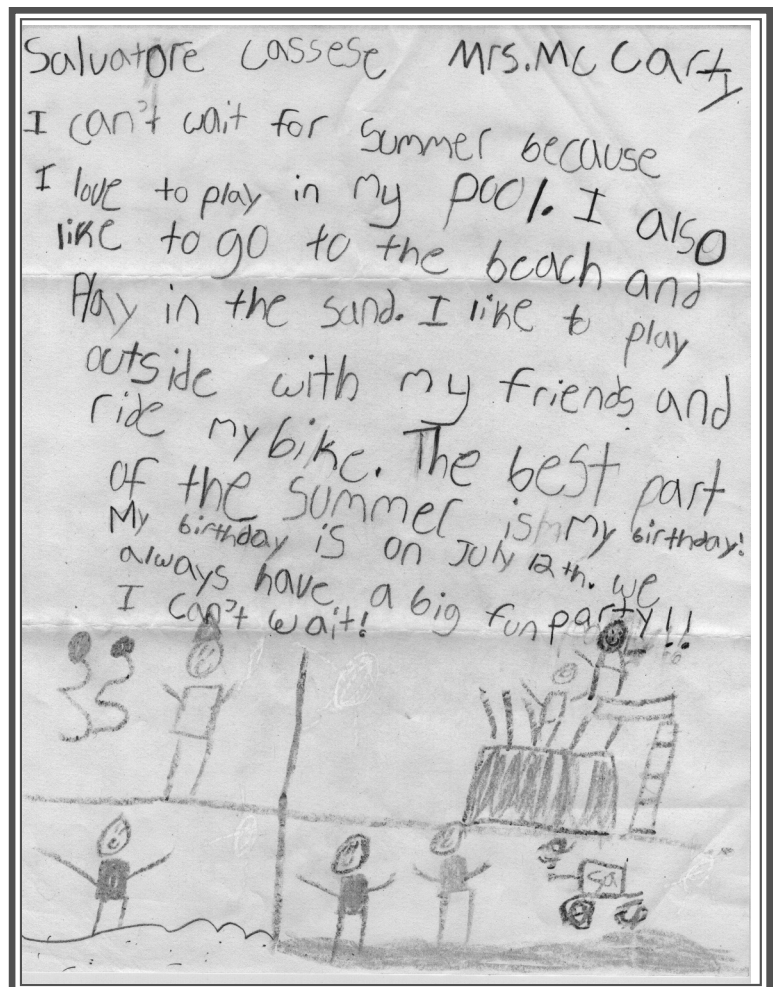 Salvatore Cassese Mrs. Mc Carty
I can't wait for summer because
I love to play in my pool. I also
like to go to the beach and
Play in the sand. I like to play
outside with my friends and
ride my bike. The best part
of the summer is my birthday!
My birthday is on July 12th. we
always have a big fun party!!
I can't wait!